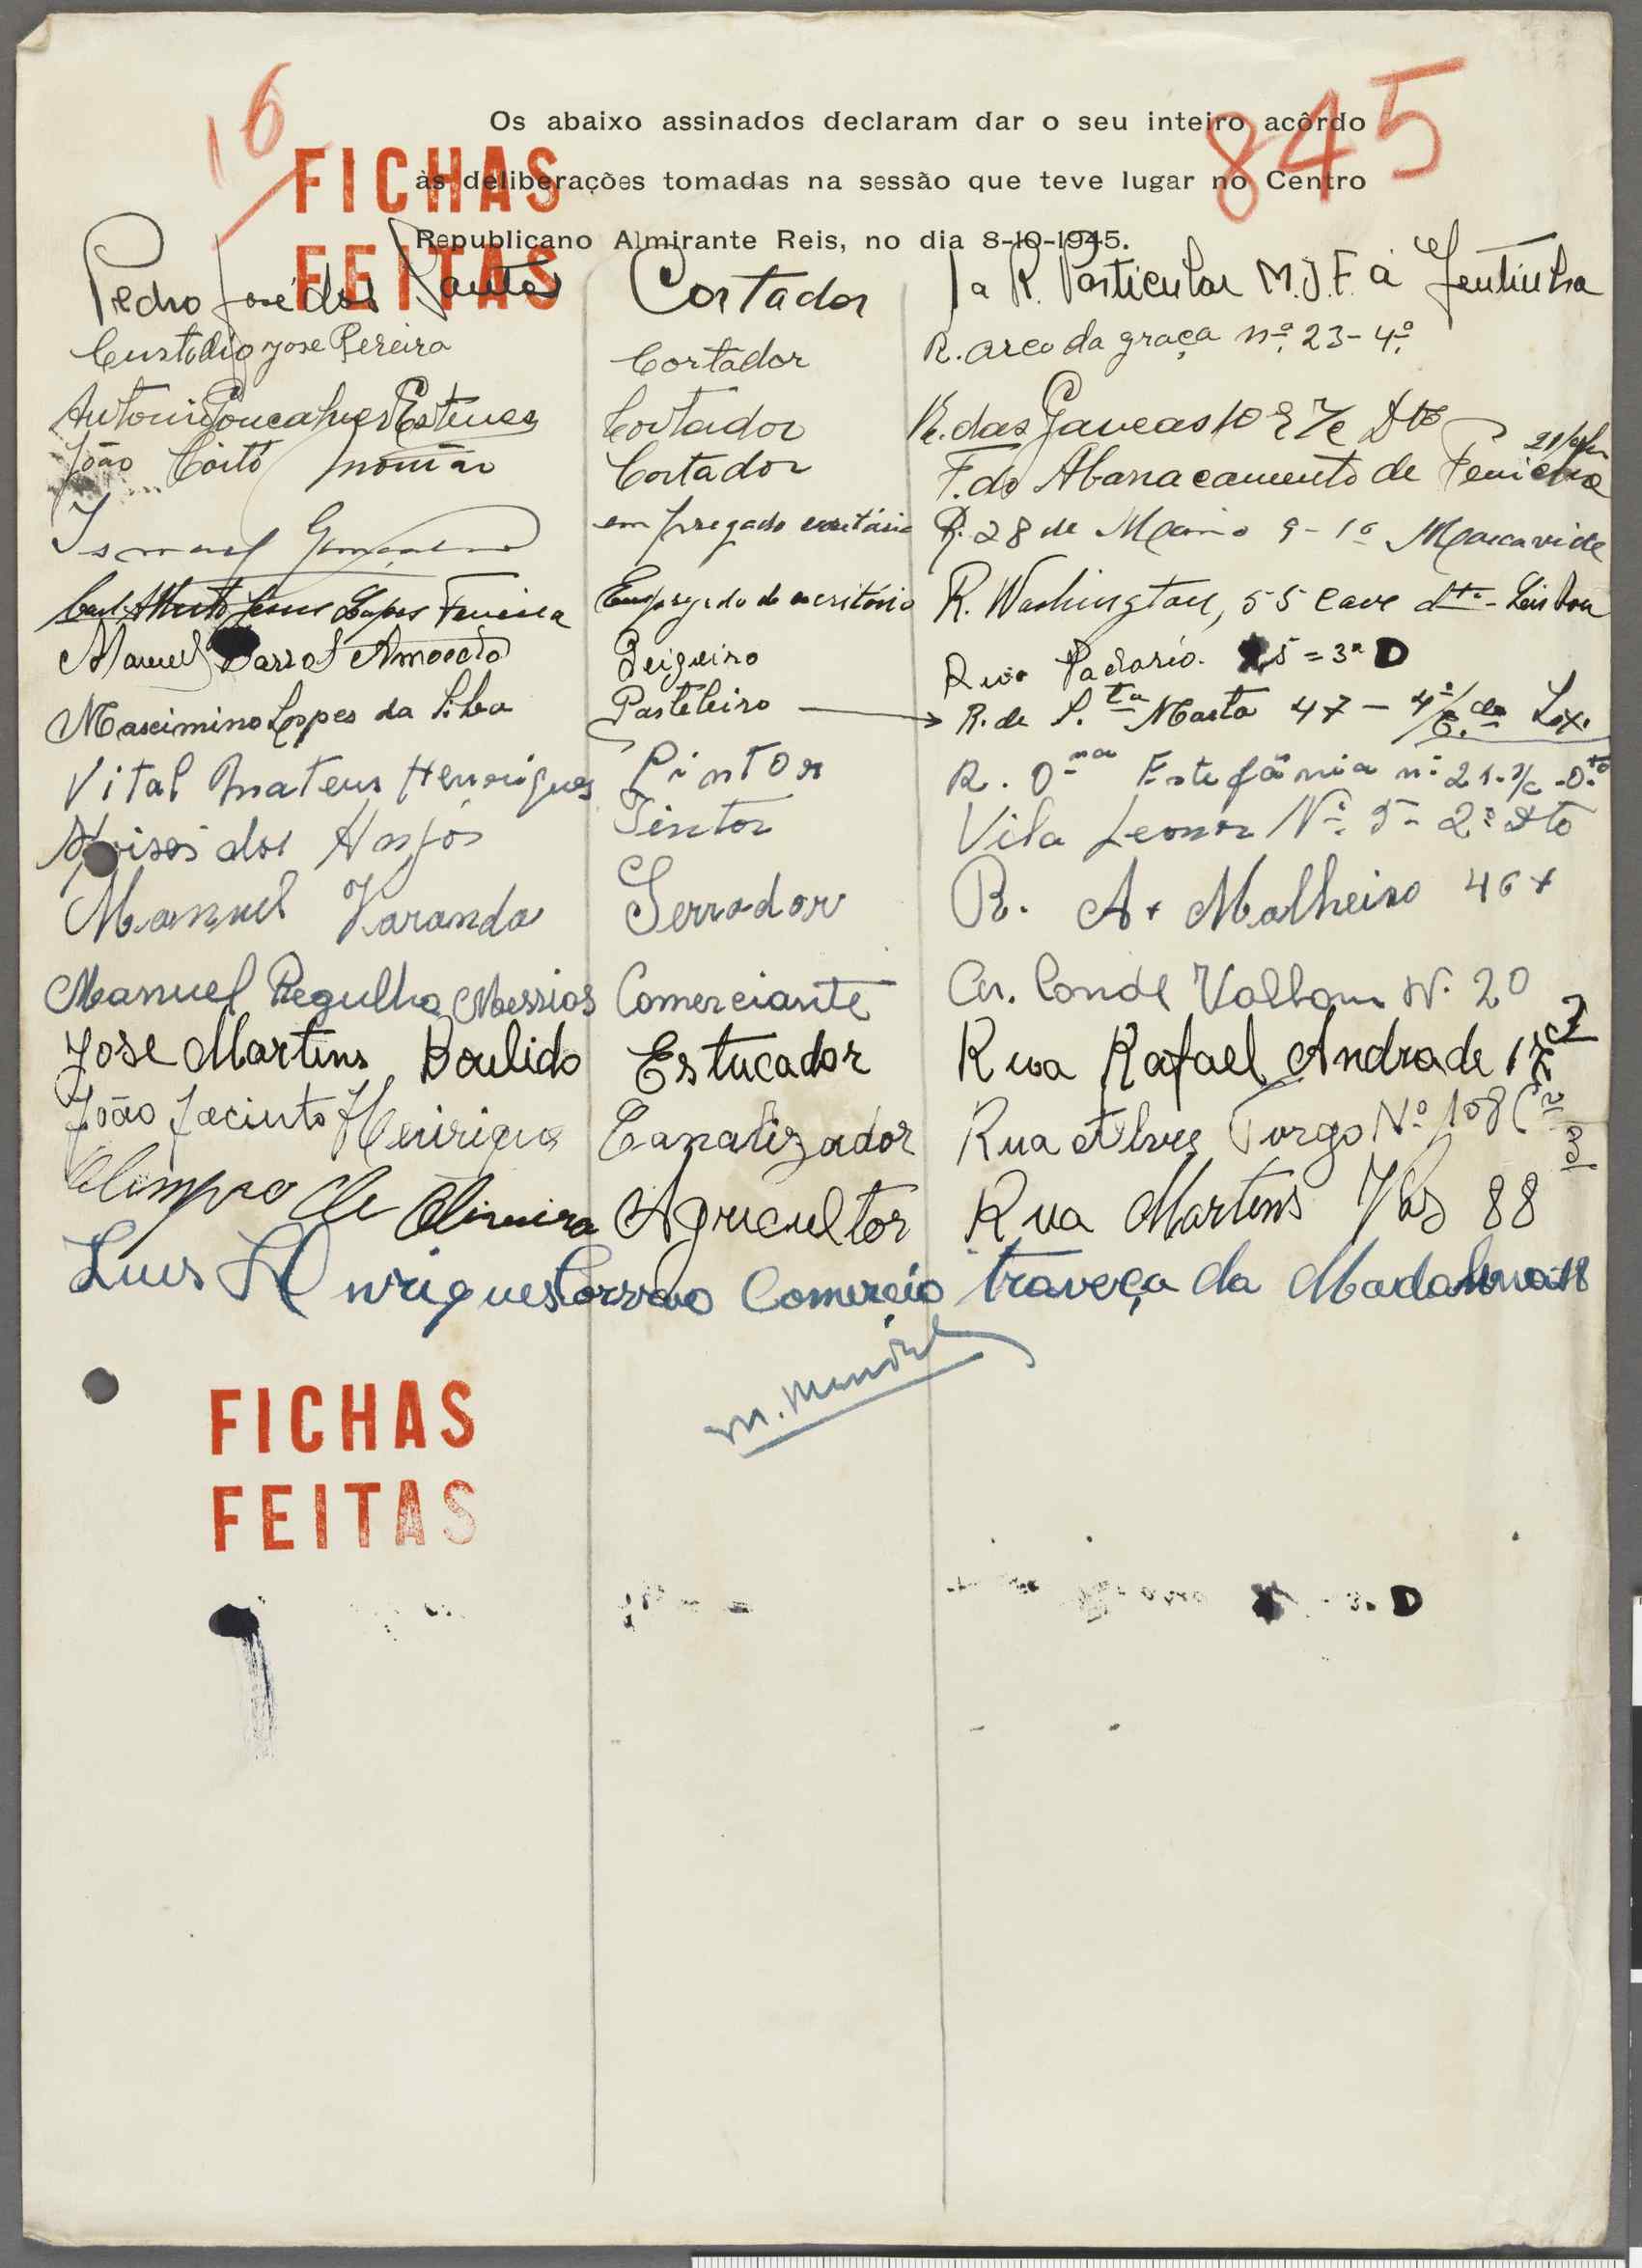 16
845
Os abaixo assinados declaram dar o seu inteiro acôrdo
às deliberações tomadas na sessão que teve lugar no Centro
Republicano Almirante Reis, no dia 8-10-1945.
FICHAS
FEITAS
Pedro José dos Santos Cortador 1a R. Particular M.J.F. á
Custodio Jose Pereira Cortador R. arco da graça nº 23-4º
Antonio Gonçalves Esteves Cortador R. das Gaveas 10 Dto
João Couto Cortador T. do Abarracamento de Peniche
Ismael empregado escritório R. 28 de Maio 9-1º Moscavide
Alberto Lopes Ferreira Empregado de escritório R. Washington, 55 Cave dto - Lisboa
Manuel Barros Rua Padaria 25=3º D
Mascimino Lopes da Silva Pasteleiro R. de S.ta Marta 47-4º Lxª
Vital Mateus Henriques Pintor R. D.na Estefânia nº 21-r/c-D.to
Moises dos Anjos Pintor Vila Leonor Nº 5-2º Dto
Manuel Varanda Serrador R. A. Malheiro
Manuel Regulho Messias Comerciante Av. Conde Valbom Nº 20
Jose Martins Boulido Estucador Rua Rafael Andrade
João Jacinto Henriques Canalizador Rua Alves Torgo Nº 108
Olimpio de Oliveira Agricultor Rua Martens 88
Luis Correia Comercio traveça da Madalena 18
M. Mendes
FICHAS
FEITAS